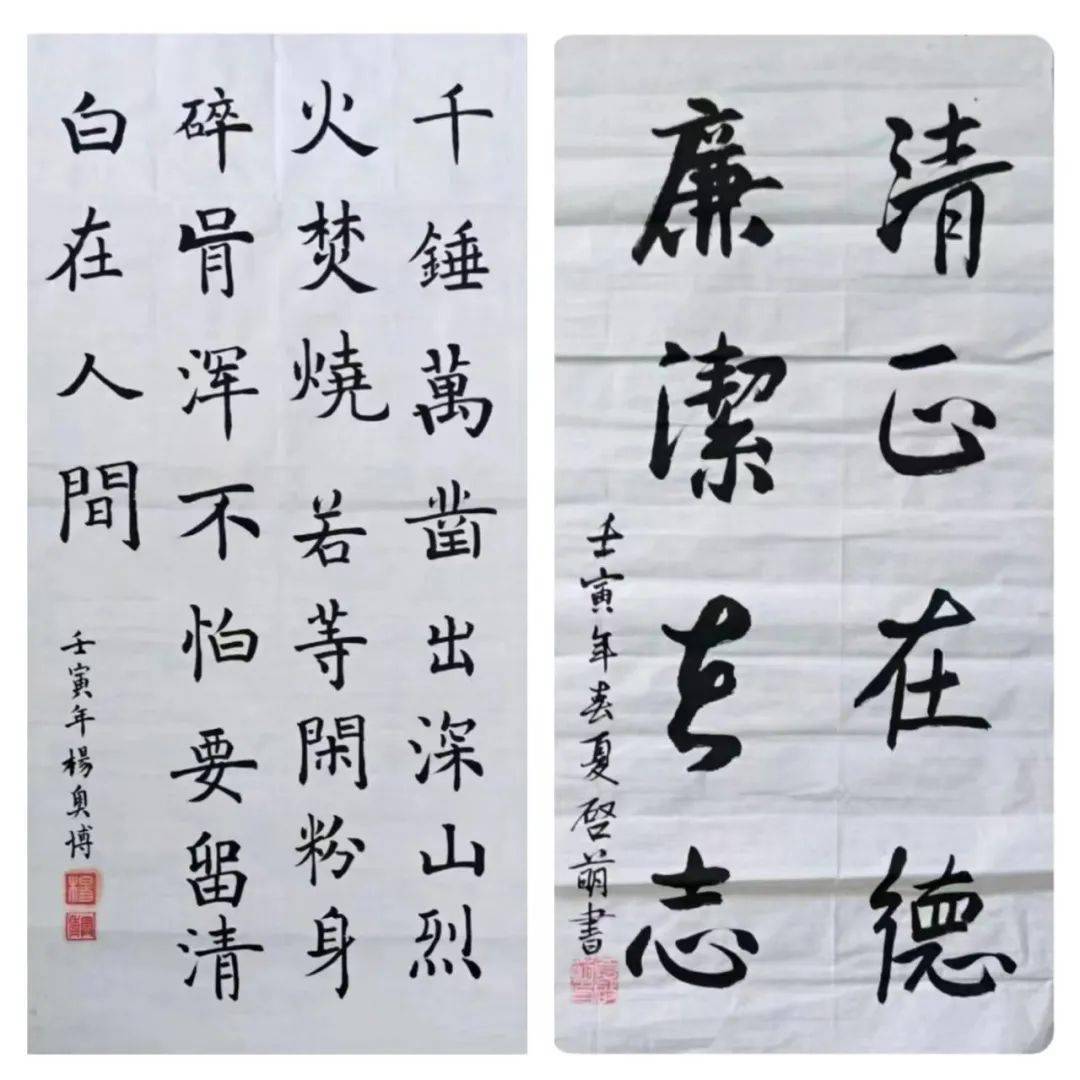 千錘萬凿出深山烈
火焚燒若等閑粉身
碎骨浑不怕要留清
白在人間
壬寅年楊奥博
清正在德
廉潔在志
壬寅年春夏啓萌書